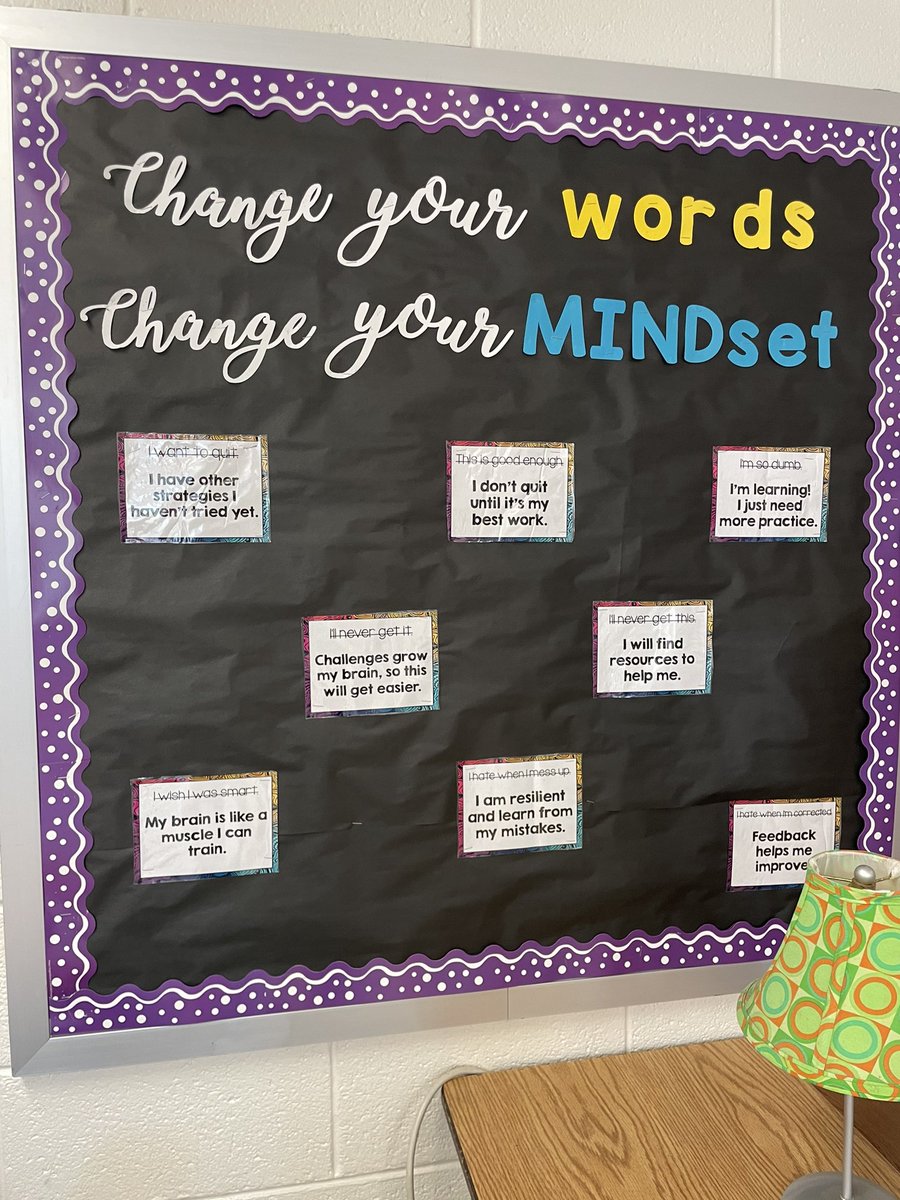 Change your words
Change your MINDset
I want to quit.
I have other
strategies I
haven't tried yet.
This is good enough.
I don't quit
until it's my
best work.
I'm so dumb.
I'm learning!
I just need
more practice.
I'll never get it.
Challenges grow
my brain, so this
will get easier.
I'll never get this.
I will find
resources to
help me.
I wish I was smart.
My brain is like a
muscle I can
train.
I hate when I mess up.
I am resilient
and learn from
my mistakes.
I hate when I'm corrected.
Feedback
helps me
improve